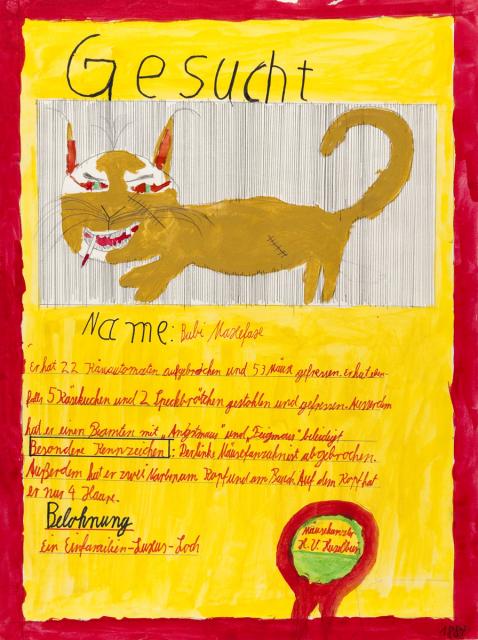 Gesucht
Name: Bubi Maxefaxe
Er hat 22 Käseautomaten aufgebrochen und 53 Mäuse gefressen. er hat eben-
falls 5 Käsekuchen und 2 Speckbrötchen gestohlen und gefressen. Ausserdem
hat er einen Beamten mit „Angstmaus" und „Feigmaus" beleidigt
Besondere Kennzeichen: Der linke Mäusefanzahn ist abgebrochen.
Außerdem hat er zwei Narben am Kopf und am Bauch. Auf dem Kopf hat
er nur 4 Haare.
Belohnung
Ein Einfamilien-Luxus-Loch
Mäusekanzler
H. V.